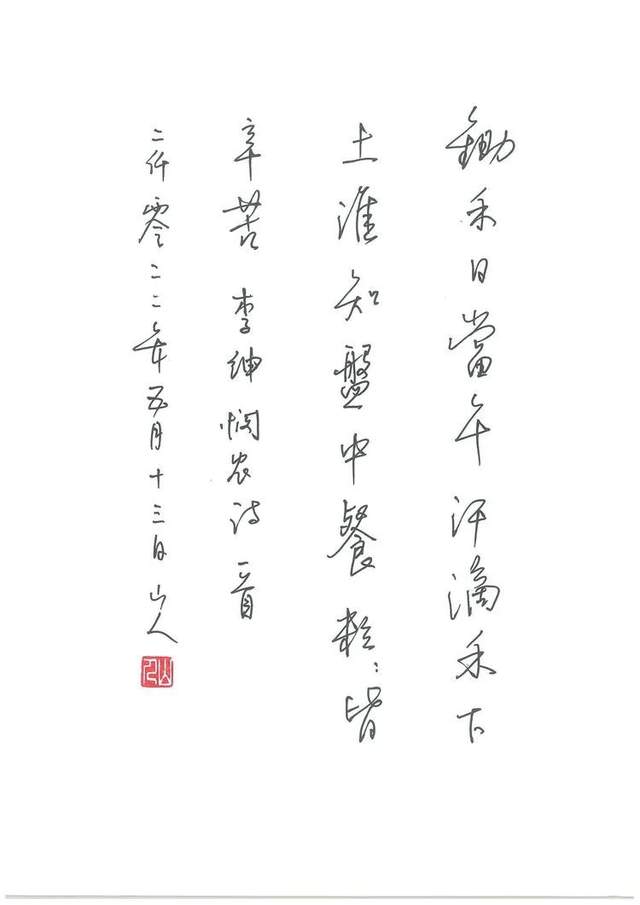 鋤禾日當午汗滴禾下
土誰知盤中餐粒〻皆
辛苦 李绅悯农诗一首
二仟零二二年五月十三日 山人
山人